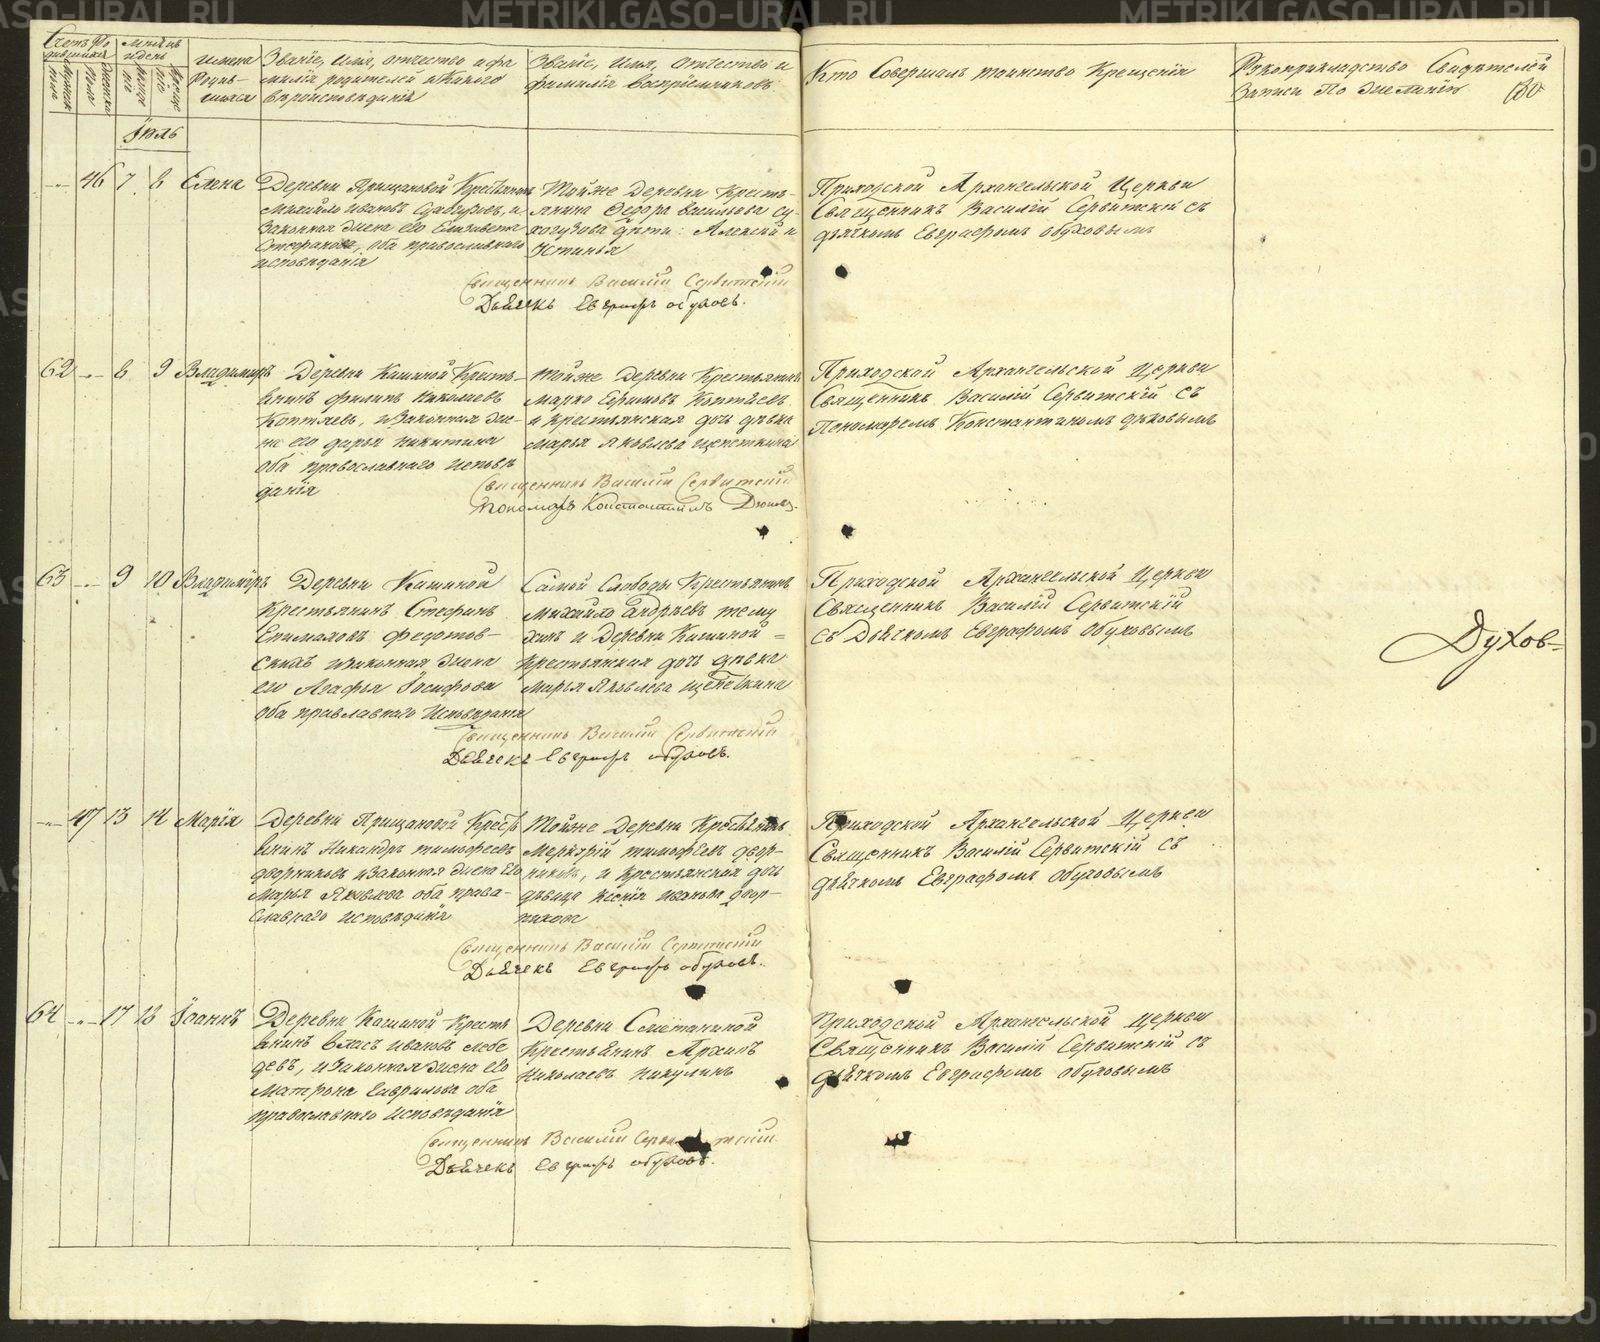 METRIKI.GASO-URAL.RU
Счетъ Ро
дившихся
мѣсяцъ
и день
имена
Родив-
шихся
Званіе, имя, отчество и фа
милія родителей и Какого
вѣроисповѣданія
Званіе, имя, отчество и
фамилія воспріемниковъ
Кто Совершалъ таинство Крещенія
Рукоприкладство Свидѣтелей
Записи По желанію
Іюль
46 7 8 Елена
Деревни Прищановой Крестьянинъ
Михайло Ивановъ и
Законная жена его Елизавета
Стефанова, оба православнаго
исповѣданія
Тойже Деревни Кресть-
янина Федора Васильева
дѣти: Алексій и
Устинья
Приходской Архангельской Церкви
Священникъ Василій Сервитскій съ
дьячкомъ Евграфомъ Обуховымъ
Священникъ Василій Сервитскій
Дьячекъ Евграфъ Обуховъ.
62 8 9 Владимиръ
Деревни Кашиной Кресть-
янинъ Филипъ Николаевъ
Коптяевъ, и Законная же-
на его Дарья Никитина
оба православнаго исповѣ
данія
Тойже Деревни Крестьянинъ
Марко Ефимовъ Коптяевъ
и крестьянская дочь дѣвка
Марья Яковлева Щепеткина
Приходской Архангельской Церкви
Священникъ Василій Сервитскій съ
Пономаремъ Константиномъ
Священникъ Василій Сервитскій
Пономарь Константинъ
63 9 10 Владиміръ
Деревни Кашиной
Крестьянинъ Стефанъ
Епимаховъ Федотов-
скихъ и законная жена
его Агафья Іосифова
оба правлавнаго Исповѣданія
Самой Слободы Крестьянинъ
Михайло Андрѣевъ
и Деревни Кашиной =
Крестьянская дочь дѣвка
Марья Яковлева Щепеткина
Приходской Архангельской Церкви
Священникъ Василій Сервитскій
съ Дьячкомъ Евграфомъ Обуховымъ
Духов=
Священникъ Василій Сервитскій
Дьячекъ Евграфъ Обуховъ.
47 13 14 Марія
Деревни Прищановой Кресть
янинъ Никандръ Тимофеевъ
Дворниковъ и Законная жена Его
Марья Яковлева оба право-
славнаго исповѣданія
Тойже Деревни Крестьянинъ
Меркурій Тимофѣевъ Двор-
никовъ, и Крестьянская дочь
дѣвица Ксенія Иванова Двор-
никова
Приходской Архангельской Церкви
Священникъ Василій Сервитскій съ
дьячкомъ Евграфомъ Обуховымъ
Священникъ Василій Сервитскій
Дьячекъ Евграфъ Обуховъ.
64 17 18 Іоаннъ
Деревни Кашиной Кресть
янинъ Власъ Ивановъ Лебе
девъ, и Законная жена его
Матрона Гаврилова оба
православнаго Исповѣданія
Деревни Сметаниной
Крестьянинъ Архипъ
Николаевъ Никулинъ
Приходской Архангельской Церкви
Священникъ Василій Сервитскій съ
дьячкомъ Евграфомъ Обуховымъ
Священникъ Василій
Дьячекъ Евграфъ Обуховъ.
METRIKI.GASO-URAL.RU